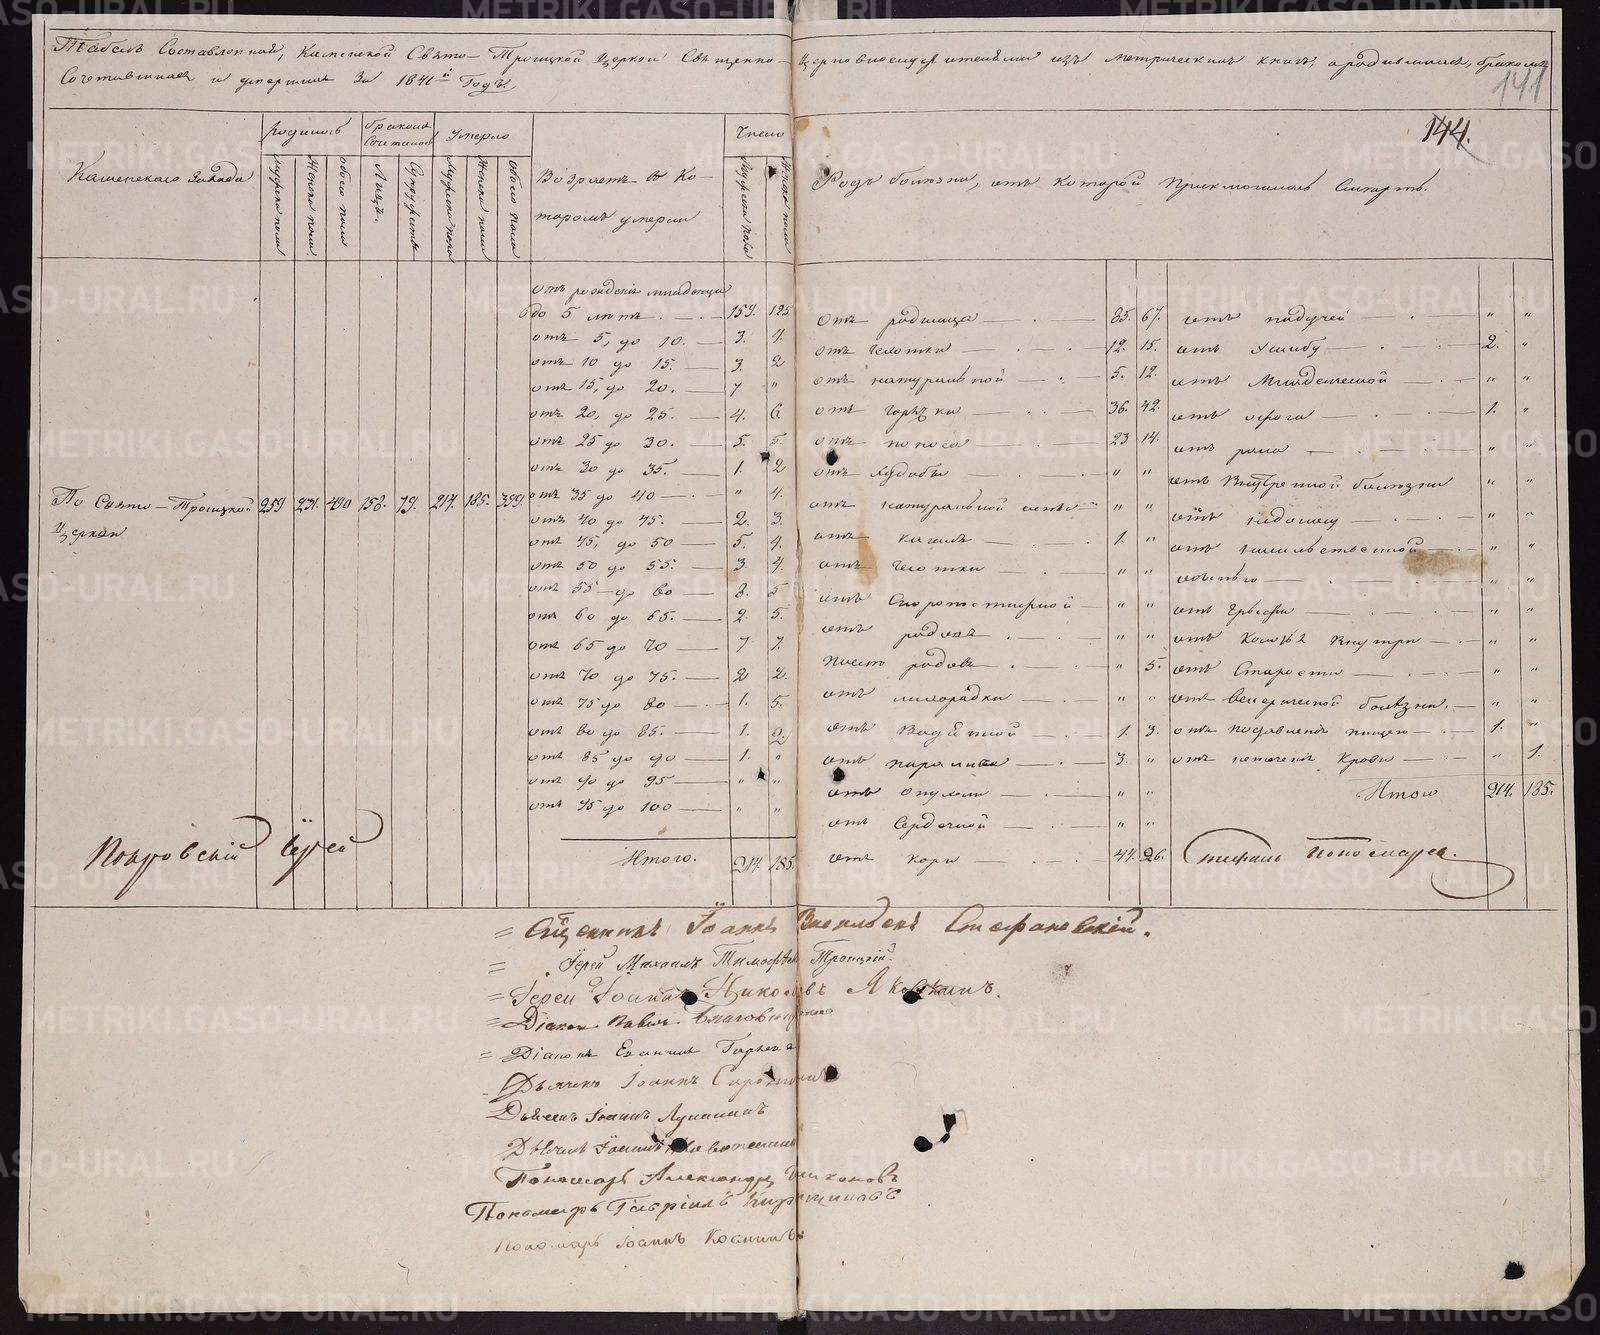 Табель Составленный, Каменской Свято-Троицкой Церкви Священно-Церковнослужителями изъ метрическихъ книгъ, о родившихся, бракомъ
Сочетавшихся и умершихъ За 1841й Годъ.
141
144.
Каменскаго Завода
Родилось
бракомъ Сочеталось
Умерло
Мужска пола
Женска пола
обоего пола
Лицъ.
Супружествъ
Мужска пола
Женска пола
Обоего пола
Возрастъ въ Которомъ умерли
Число
Мужска пола
Женска пола
Родъ болѣзни, отъ Которой Приключилась Смерть.
По Свято-Троицкой Церкви
259 231. 490 158. 79. 214. 185. 399.
отъ рожденія младенца
до 5 лѣтъ 159. 125
отъ 5, до 10. 3. 4.
отъ 10 до 15. 3. 2
отъ 15, до 20. 7 "
отъ 20, до 25. 4. 6.
отъ 25 до 30. 5. 5.
отъ 30 до 35. 1. 2
отъ 35 до 40 " 4.
отъ 40 до 45. 2. 3.
отъ 45, до 50 5. 4.
отъ 50 до 55. 3. 4.
отъ 55 до 60 8. 5
отъ 60 до 65. 2. 5.
отъ 65 до 70 7 7.
отъ 70 до 75. 2 2.
отъ 75 до 80 1. 5.
отъ 80 до 85. 1. 2.
отъ 85 до 90 1. "
отъ 90 до 95 " "
отъ 95 до 100 " "
Итого. 214. 185.
отъ родимца 85. 67.
отъ Чахотки 12. 15.
отъ натуральной 5. 12.
отъ горячки 36. 42.
отъ поноса 23 14.
отъ Худобы " "
отъ натуральной оспы " "
отъ кашля 1. "
отъ Чахотки " "
отъ Скоропостижной " "
отъ родовъ " "
После родовъ " 5.
отъ лихорадки " "
отъ Водяной 1. 3.
отъ паралича 3. "
отъ Опухоли " "
отъ Сердечной " "
отъ кори 44. 26.
отъ падучей " "
отъ Ушибу 2. "
отъ Младенческой " "
отъ 1. "
отъ " "
отъ Внутренной болѣзни " "
отъ " "
отъ " "
" "
отъ Грыжи " "
отъ Колотья внутри " "
отъ Старости " "
отъ венерической болѣзни. " "
отъ подавленія пищею 1. "
отъ истеченія Крови " 1.
Итого 214. 185.
Покровскій Іерей
Стефанъ Пономаревъ.
= Священникъ Іоаннъ Васильевъ Стефановскій.
= Іерей Михаилъ Тимофѣевъ Троицкій.
= Іерей Іоаннъ Николаевъ Якопинъ.
= Діаконъ Павелъ
= Діаконъ
Дьячекъ Іоаннъ
Дьячекъ Іоаннъ Лукинъ
Дьячекъ Іоаннъ
Пономарь Александръ Никоновъ
Пономарь Гавріилъ
Пономарь Іоаннъ Косминъ
METRIKI.GASO-URAL.RU